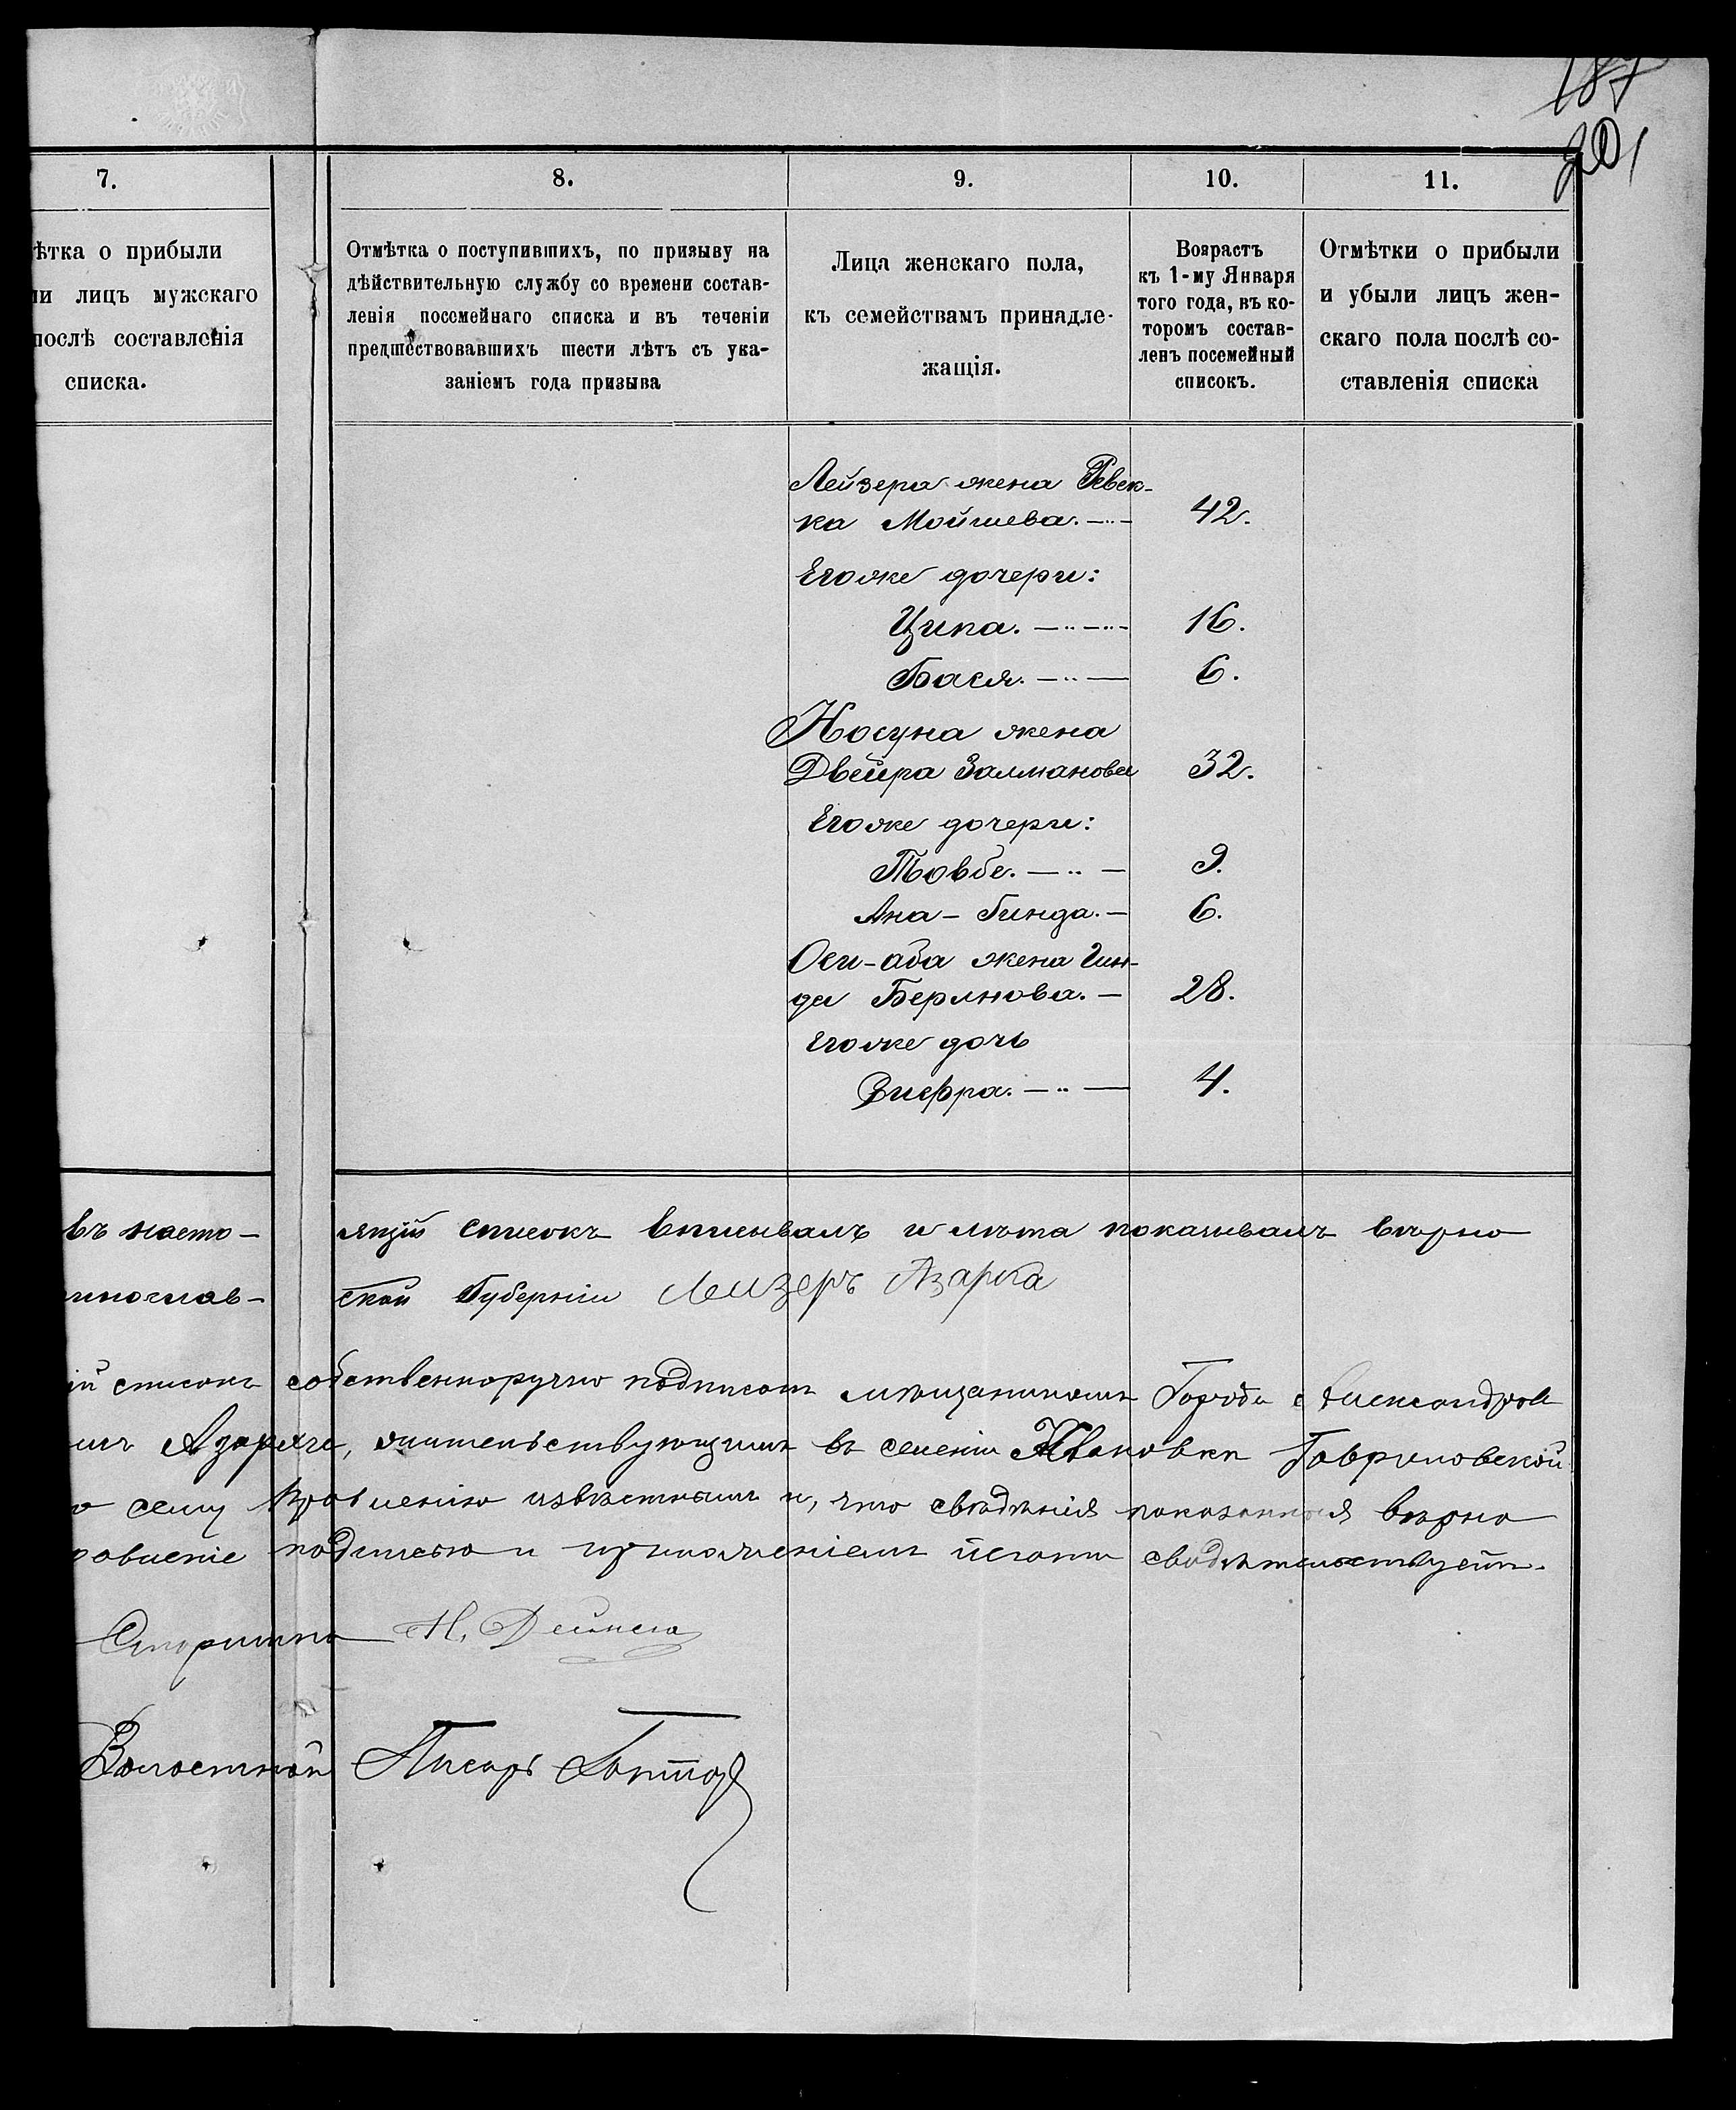 187
201
7.
8.
9.
10.
11.
ѣтка о прибыли
ли лицъ мужскаго
послѣ составленія
списка.
Отмѣтка о поступившихъ, по призыву на
дѣйствительную службу со времени состав-
ленія посемейнаго списка и въ теченіи
предшествовавшихъ шести лѣтъ съ ука-
заніемъ года призыва
Лица женскаго пола,
къ семействамъ принадле-
жащія.
Возрастъ
къ 1-му Января
того года, въ ко-
торомъ состав-
ленъ посемейный
списокъ.
Отмѣтки о прибыли
и убыли лицъ жен-
скаго пола послѣ со-
ставленія списка
Лейзера жена Ревек-
ка Мойшева. 42.
Егоже дочери:
Ципа. 16.
Бася. 6.
Носуна жена
Двейра Залманова 32.
Егоже дочери:
Товбе. 9.
Ана-Гинда. 6.
Оси-аба жена Гин-
да Берлнова. 28.
Егоже дочь
Зифра. 4.
въ насто- ящій списокъ вписывалъ и лѣта показывалъ вѣрно
инослав- ской Губерніи Лизеръ Азарха
ій списокъ собственноручно подписанъ мѣщаниномъ Города Александров
мъ Азархе, жительствующимъ въ селеніи Ивановка Гавриловской
о сему Правленію извѣстнымъ и, что свѣдѣнія показанныя вѣрно
равленіе подписью и приложеніемъ печати свидѣтельствуетъ.
Старшина Н. Дейнега
Волостной Писарь